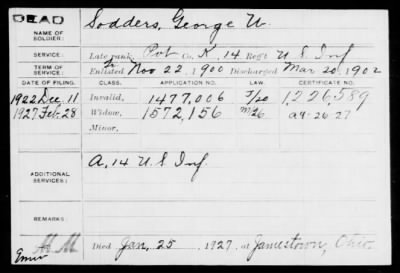 DEAD
NAME OF SOLDIER: Sodders, George W.
SERVICE: Late rank, Pvt Co. K, 14 Reg't U S Inf
TERM OF SERVICE: Enlisted Nov 22, 1900 Discharged Mar 20, 1902
DATE OF FILING. CLASS. APPLICATION NO. LAW CERTIFICATE NO.
1922 Dec 11 Invalid, 1477,006 1,226,589
1927 Feb 28 Widow, 1572,156 M26 a9-26-27
Minor,
ADDITIONAL SERVICES: A, 14 U S Inf
REMARKS:
Died Jan. 25, 1927, at Jamestown, Ohio